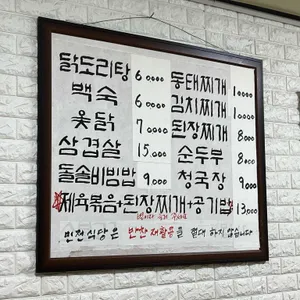 닭도리탕 60000
백숙 60000
옻닭 70000
삼겹살 15.000
돌솥비빔밥 9.000
동태찌개 10000
김치찌개 10000
된장찌개 8000
순두부 8000
청국장 9000
제육볶음+된장찌개+공기밥 13,000
빈천식당은 반찬재활용을 절대 하지 않습니다